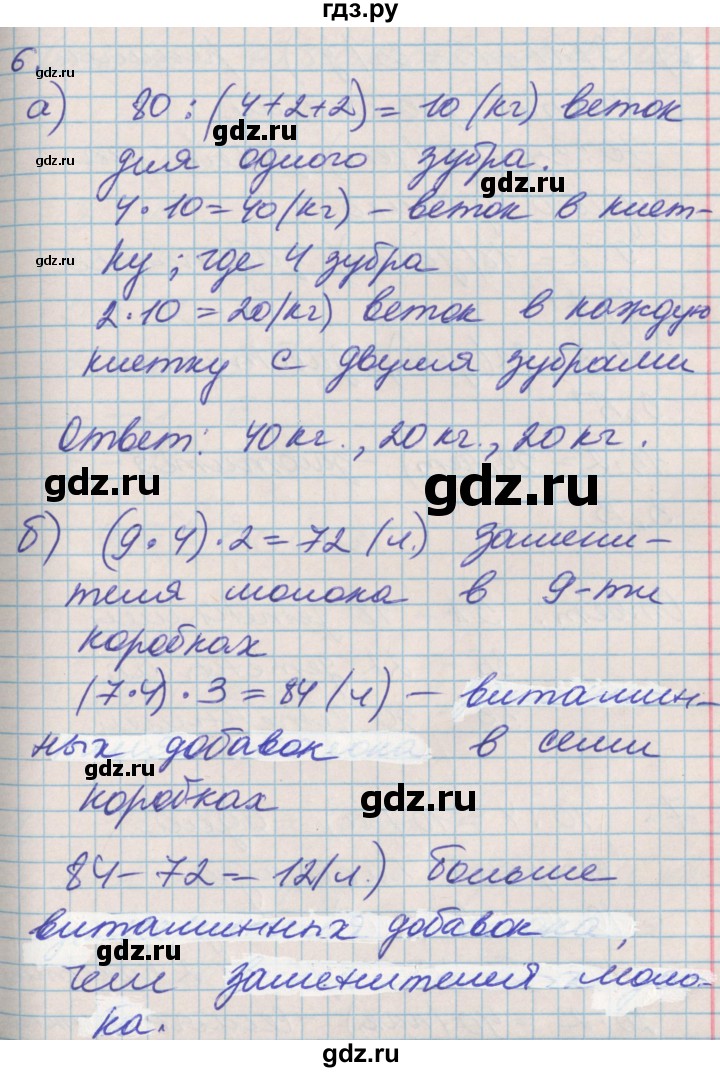 гдз.ру
6.
а) 80 : (4+2+2) = 10 (кг) веток
gdz.ru
gdz.ru
для одного зубра.
gdz.ru
4 · 10 = 40 (кг) – веток в клет-
gdz.ru
ку ; где 4 зубра
2 · 10 = 20 (кг) веток в каждую
клетку с двумя зубрами
Ответ: 40 кг., 20 кг., 20 кг.
gdz.ru
gdz.ru
б) (9 · 4) · 2 = 72 (л.) замени-
теля молока в 9-ти
коробках
(7·4) · 3 = 84 (л) – витамин-
ных добавок в семи
gdz.ru
коробках
gdz.ru
84 – 72 = 12 (л.) больше
витаминных добавок,
gdz.ru
чем заменителей моло-
ка.
gdz.ru
gdz.ru